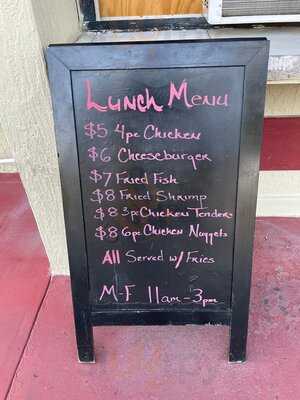 Lunch Menu
$5 4pc Chicken
$6 Cheeseburger
$7 Fried Fish
$8 Fried Shrimp
$8 3pc Chicken Tenders
$8 6pc Chicken Nuggets
All Served w/ Fries
M-F 11am-3pm